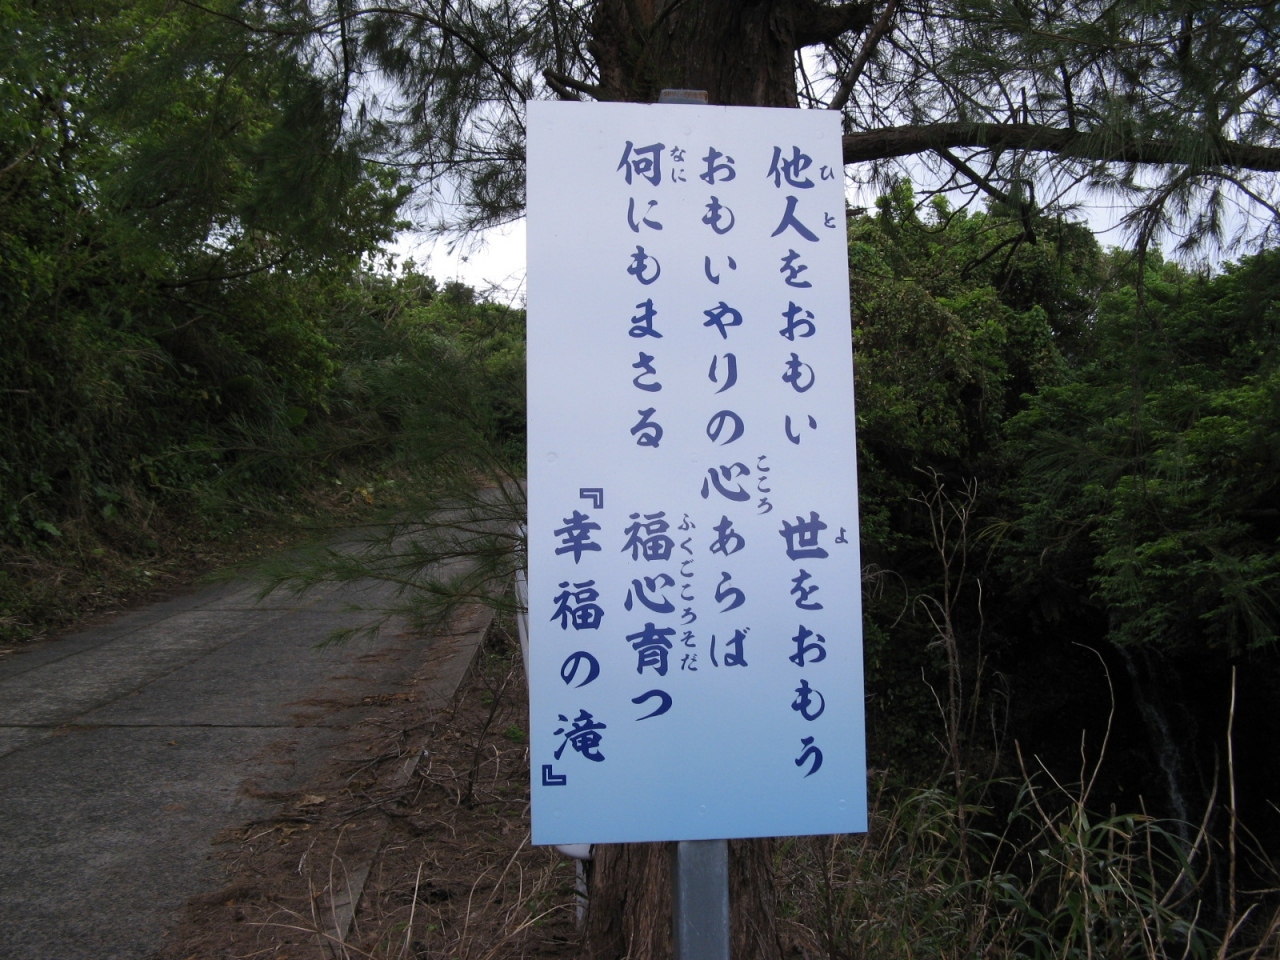 他人をおもい　世をおもう
ひと
よ
おもいやりの心あらば
こころ
何にもまさる　福心育つ
なに
ふくごころそだ
『幸福の滝』